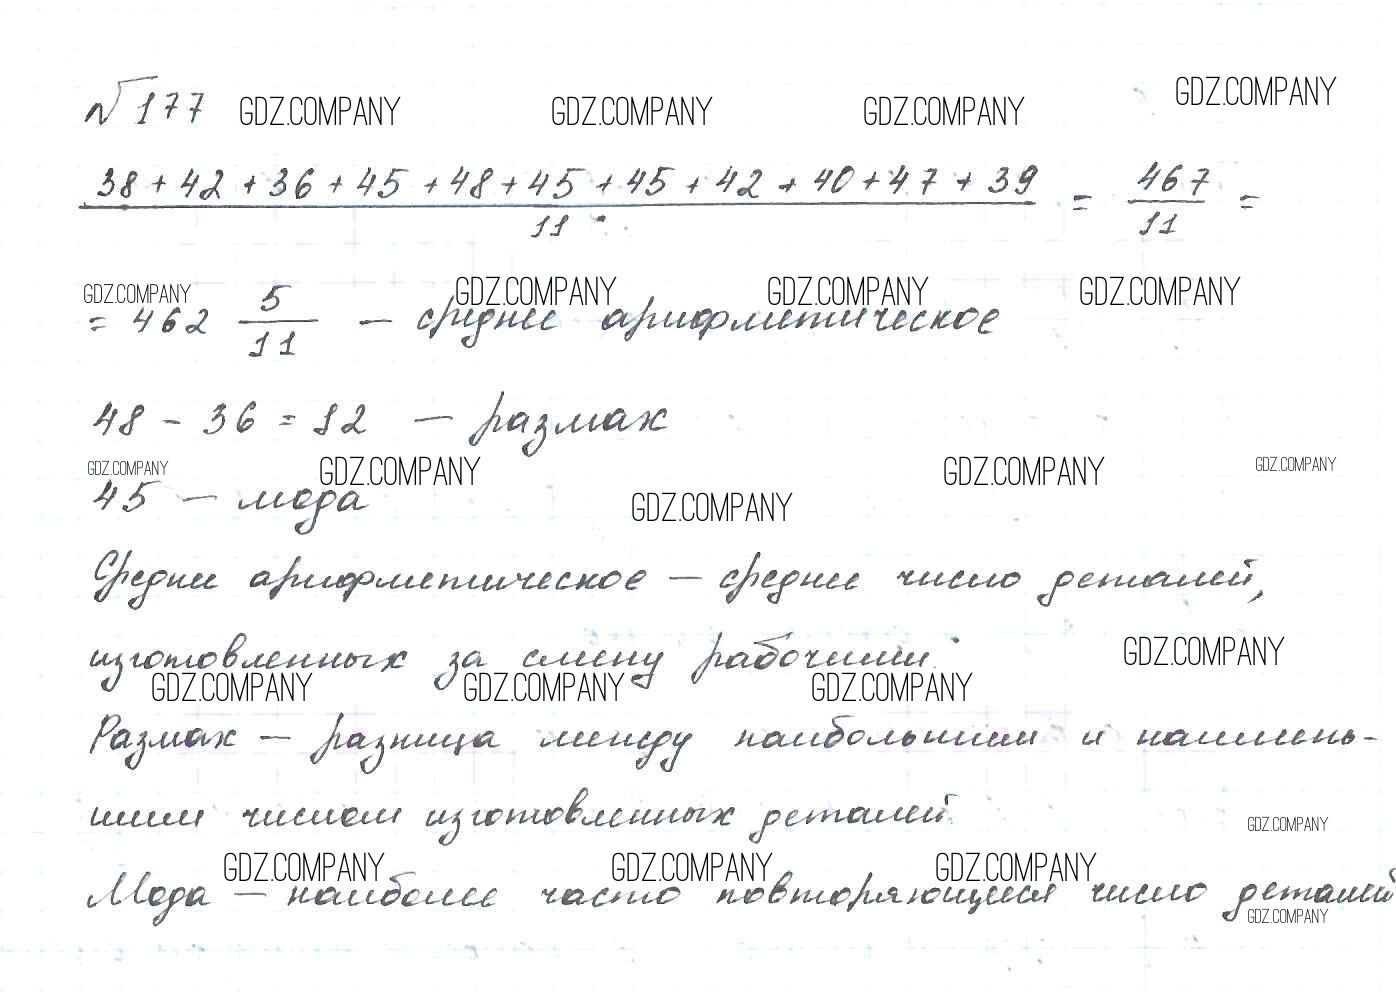 №177 GDZ.COMPANY GDZ.COMPANY GDZ.COMPANY GDZ.COMPANY
38 + 42 + 36 + 45 + 48 + 45 + 45 + 42 + 40 + 47 + 39 = 467 =
11 11
GDZ.COMPANY GDZ.COMPANY GDZ.COMPANY GDZ.COMPANY
= 462 5/11 — среднее арифметическое
48 - 36 = 12 — размах
GDZ.COMPANY GDZ.COMPANY GDZ.COMPANY GDZ.COMPANY
45 — мода GDZ.COMPANY
Среднее арифметическое — среднее число деталей,
изготовленных за смену рабочими. GDZ.COMPANY
GDZ.COMPANY GDZ.COMPANY GDZ.COMPANY
Размах — разница между наибольшим и наимень-
шим числом изготовленных деталей. GDZ.COMPANY
GDZ.COMPANY GDZ.COMPANY GDZ.COMPANY
Мода — наиболее часто повторяющееся число деталей
GDZ.COMPANY